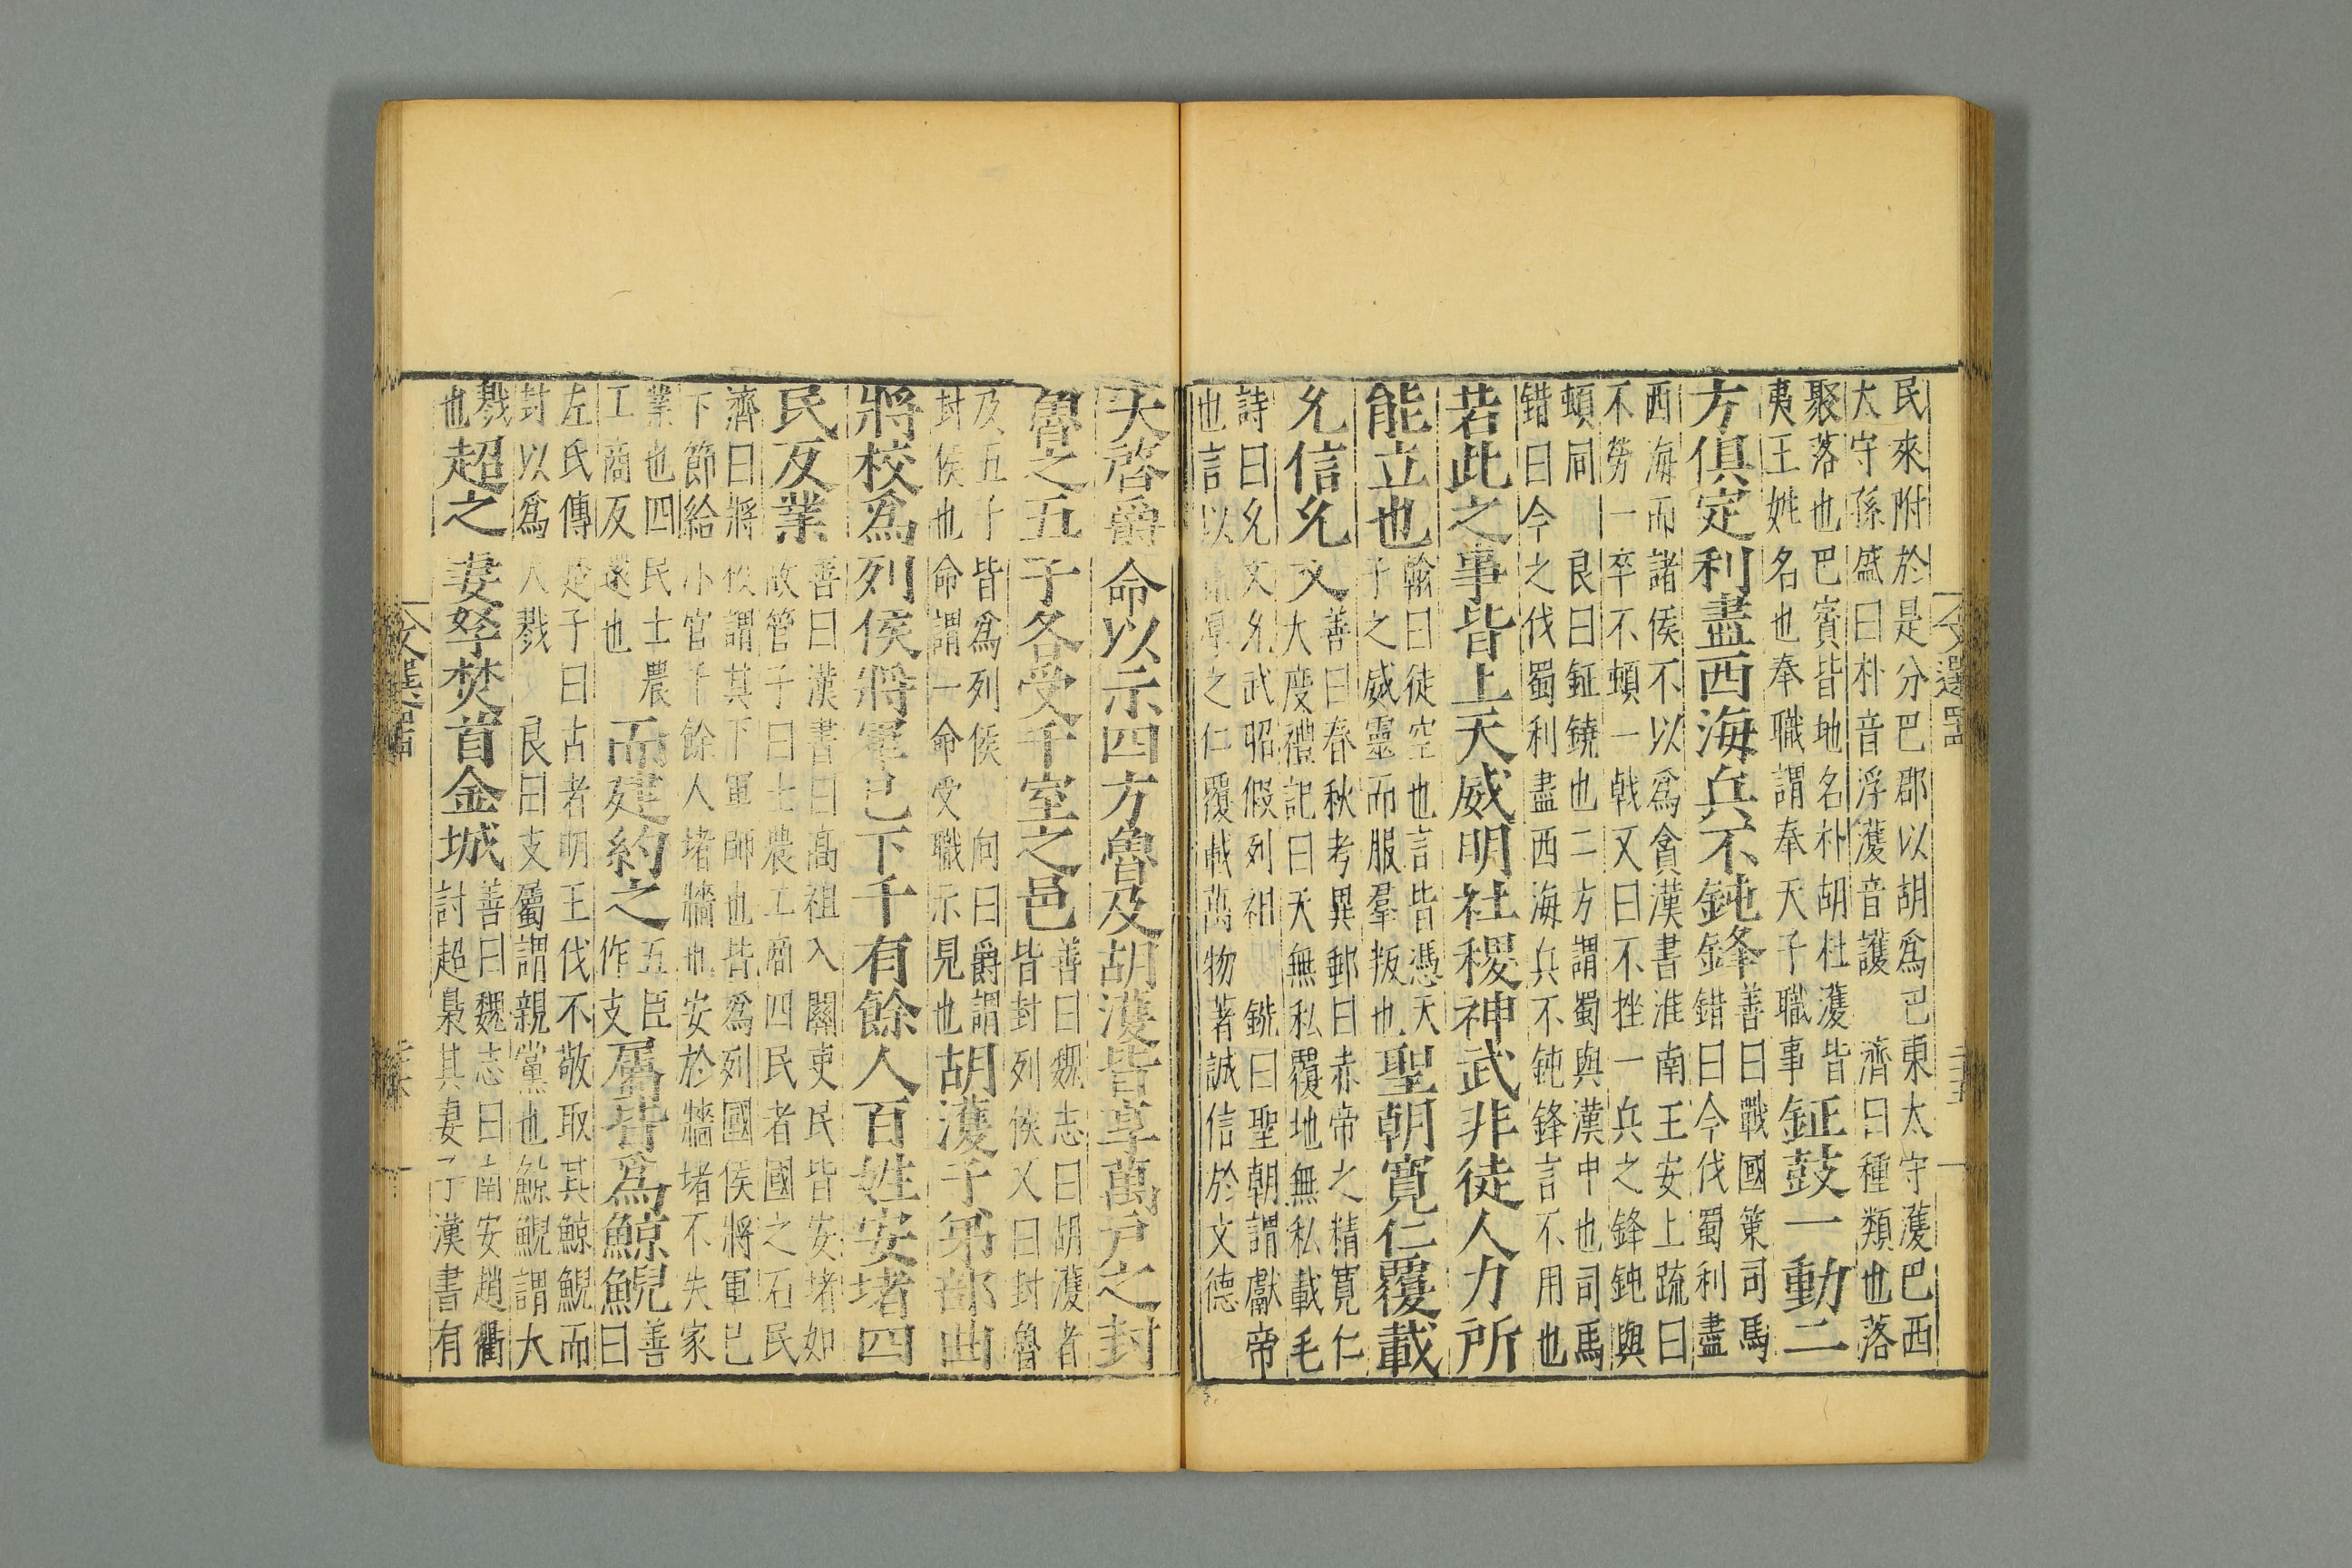 民來附於是分巴郡以胡爲巴東太守濩巴西
太守孫盛曰朴音浮濩音護 濟曰種類也落
聚落也巴賓皆地名朴胡杜濩皆
夷王姓名也奉職謂奉天子職事
鉦鼓一動二
方俱定利盡西海兵不鈍鋒
善曰戰國策司馬
錯曰今伐蜀利盡
西海而諸侯不以爲貪漢書淮南王安上疏曰
不勞一卒不頓一戟又曰不挫一兵之鋒鈍與
頓同 良曰鉦鐃也二方謂蜀與漢中也司馬
錯曰今之伐蜀利盡西海兵不鈍鋒言不用也
若此之事皆上天威明社稷神武非徒人力所
能立也
翰曰徒空也言皆憑天
子之威靈而服羣叛也
聖朝寬仁覆載
允信允文
善曰春秋考異郵曰赤帝之精寬仁
大度禮記曰天無私覆地無私載毛
詩曰允文允武昭假列祖 銑曰聖朝謂獻帝
也言以 厚之仁覆載萬物著誠信於文德
大啓爵命以示四方魯及胡濩皆享萬戶之封
魯之五子各受千室之邑
善曰魏志曰胡濩者
皆封列侯又曰封魯
及五子皆爲列侯 向曰爵謂
封侯也命謂一命受職示見也
胡濩子弟部曲
將校爲列侯將軍已下千有餘人百姓安堵四
民反業
善曰漢書曰高祖入關吏民皆安堵如
故管子曰士農工商四民者國之石民
濟曰將 謂其下軍師也皆爲列國侯將軍已
下節給小官千餘人堵牆也安於牆堵不失家
業也四民士農
工商反還也
而建約之
五臣
作支
屬皆爲鯨鯢
善
曰
左氏傳楚子曰古者明王伐不敬取其鯨鯢而
封以爲大戮 良曰支屬謂親黨也鯨鯢謂大
戮
也
超之妻孥焚首金城
善曰魏志曰南安趙衢
討超梟其妻子漢書有